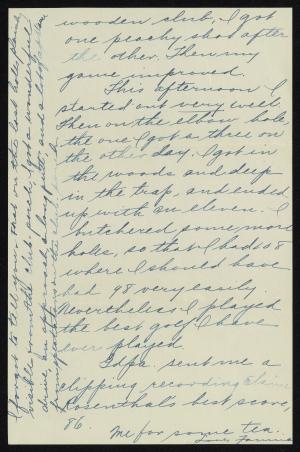 wooden club, I got
one peachy shot after
the other. Then my
game improved.
This afternoon I
started out very well.
Then on the elbow hole,
the one I got a three on
the other day. I got in
the woods and deep
in the trap, and ended
up with an eleven. I
butchered some more
holes, so that I had 108
where I should have
had 98 very easily.
Nevertheless I played
the best golf I have
ever played.
Gdpa. sent me a
clipping recording Elaine
Rosenthal's best score,
86.
Me for some tea.
I forgot to tell you that on the last hole, plainly
visible from the club porch, I got a wonderful
drive, an approach, a long putt, and a